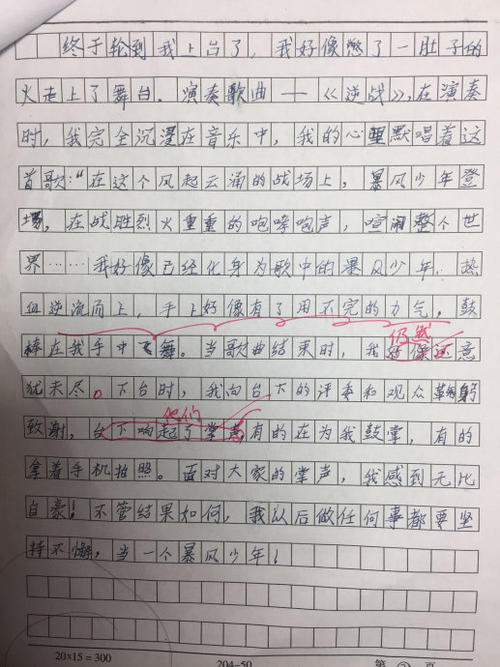 终于轮到我上台了，我好像憋了一肚子的
火走上了舞台。演奏歌曲——《逆战》，在演奏
时，我完全沉浸在音乐中，我的心里默唱着这
首歌："在这个风起云涌的战场上，暴风少年登
场，在战胜烈火重重的咆哮炮声，喧闹整个世
界……我好像已经化身为歌中的暴风少年，热
血逆流而上，手上好像有了用不完的力气，鼓
仍然
棒在我手中飞舞。当歌曲结束时，我好像还意
犹未尽。下台时，我向台下的评委和观众鞠躬
他们
致谢，台下响起了掌声有的在为我鼓掌，有的
拿着手机拍照。面对大家的掌声，我感到无比
自豪！不管结果如何，我以后做任何事都要坚
持不懈，当一个暴风少年！
20×15=300 204-50 第 页